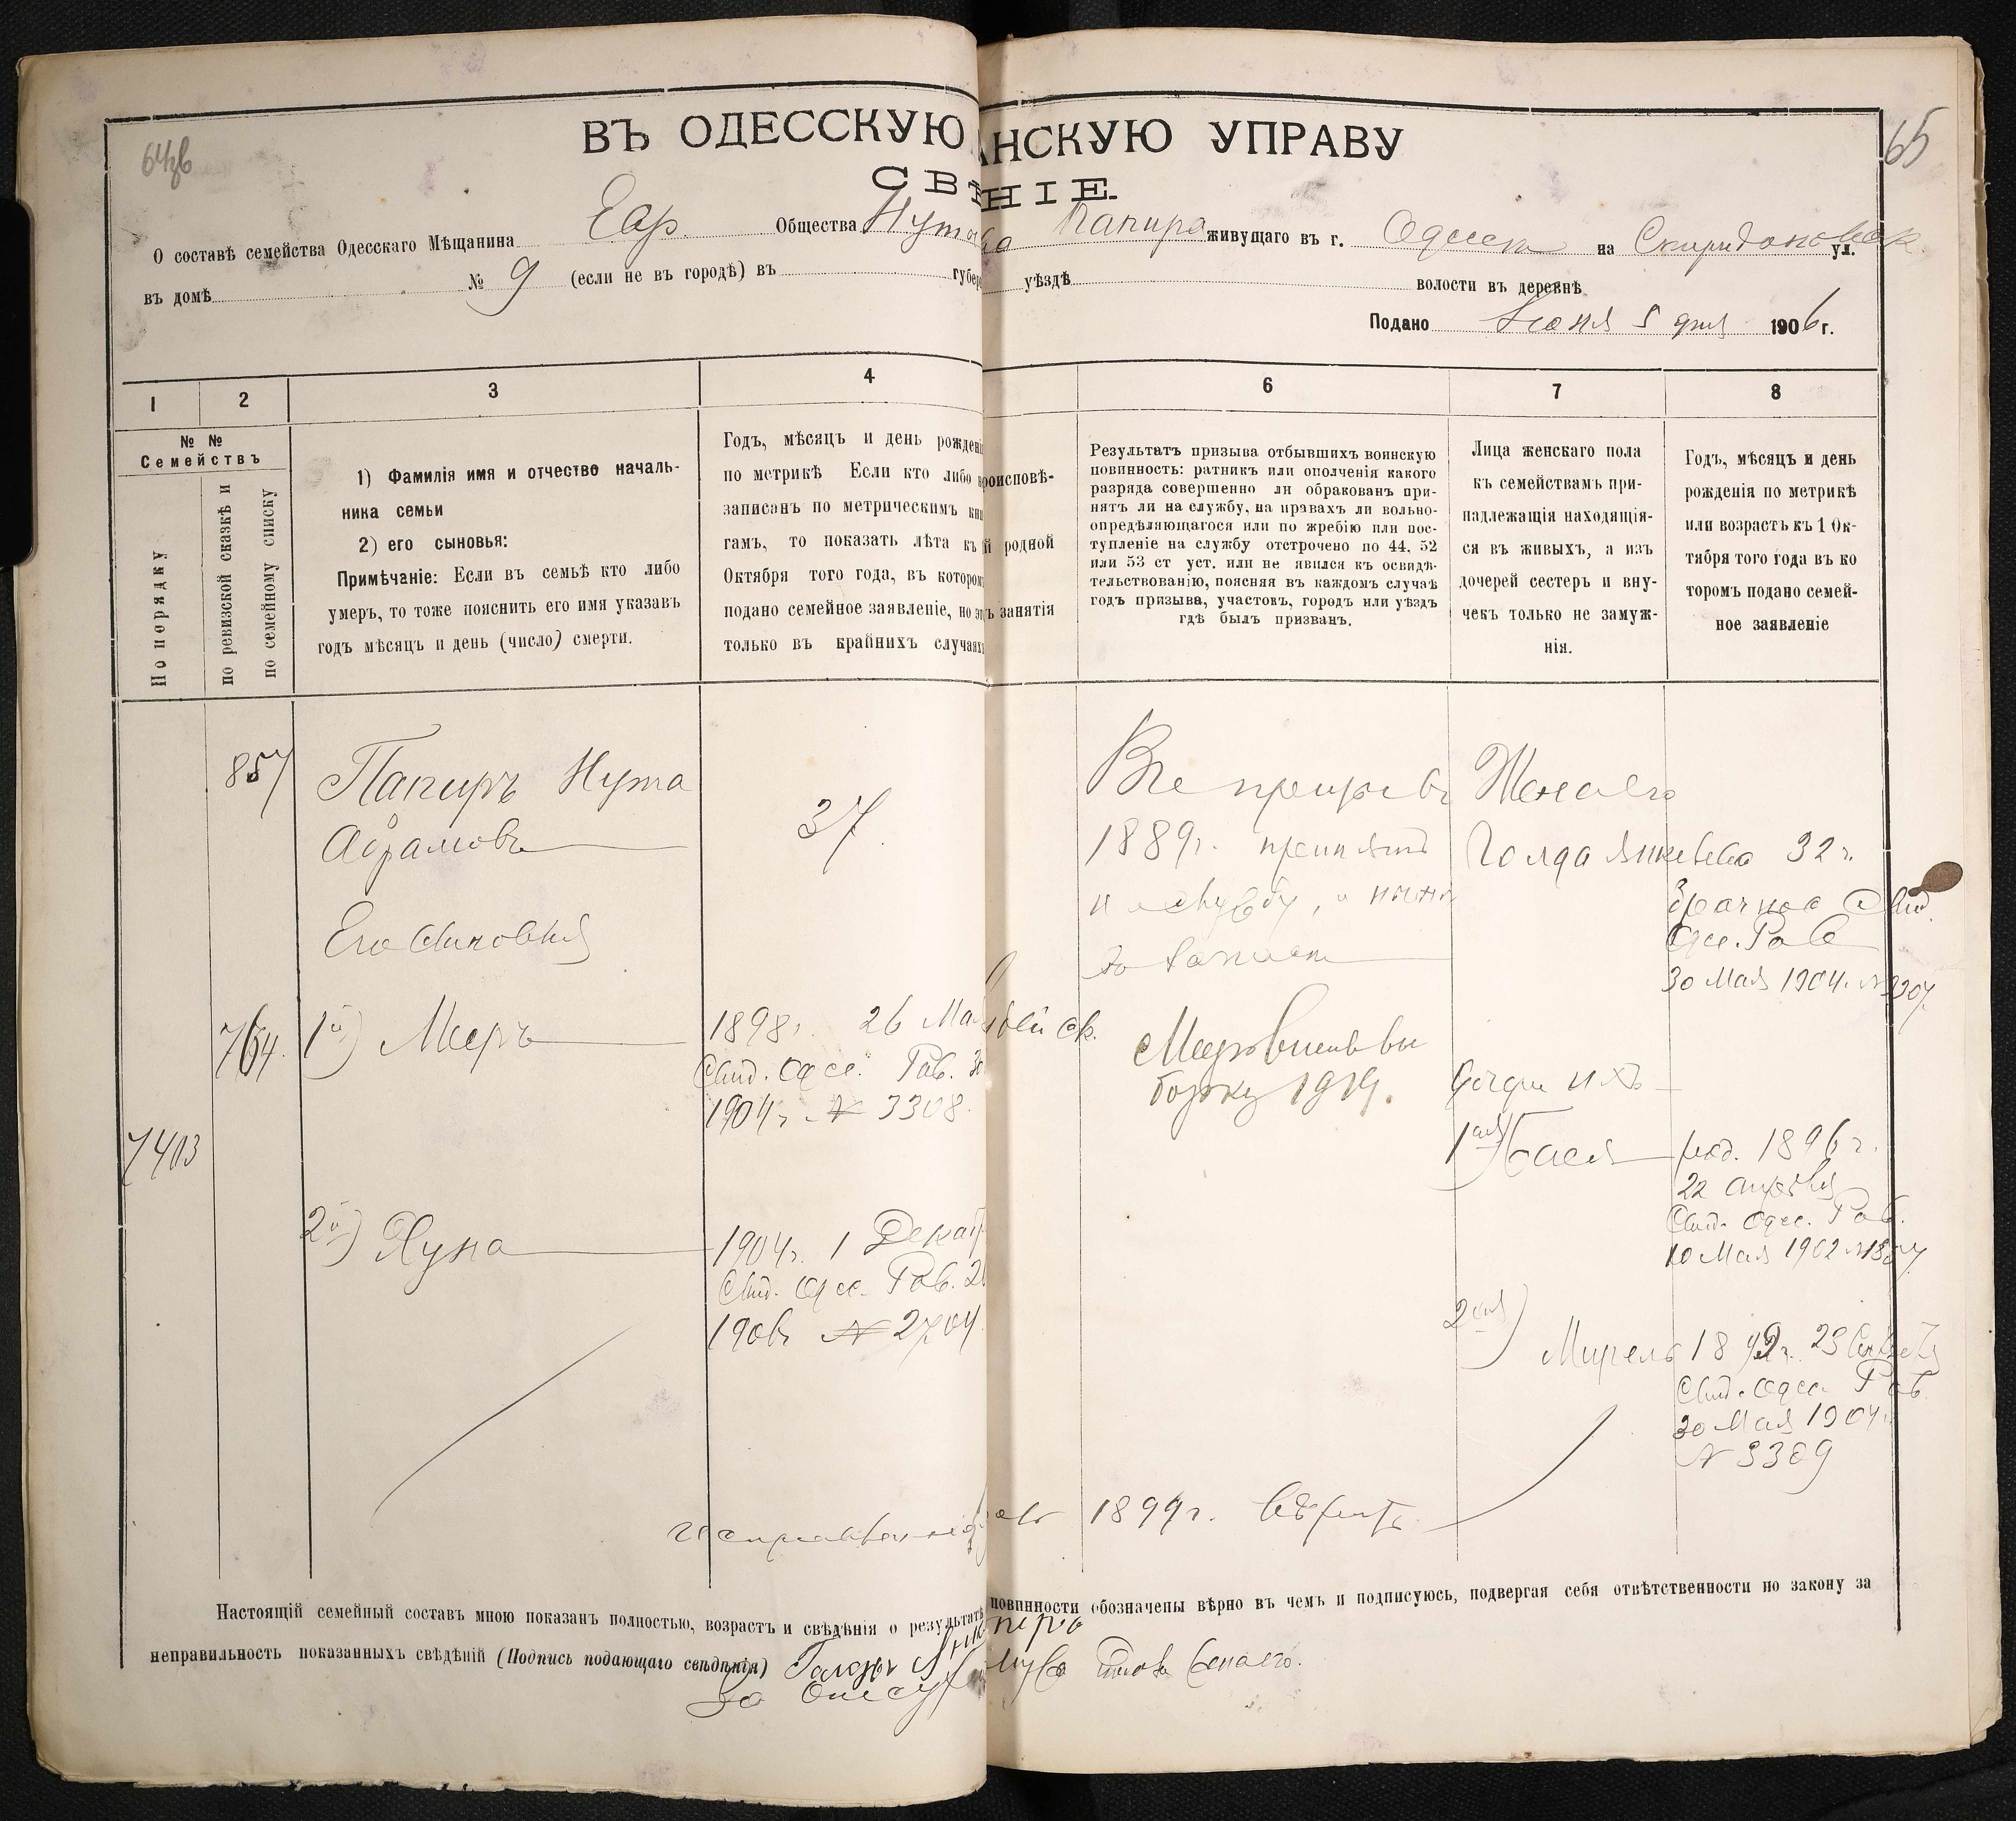 64об
65
ВЪ ОДЕССКУЮ
АНСКУЮ УПРАВУ
СВѢ
НІЕ.
О составѣ семейства Одесскаго Мѣщанина Евр. Общества Нута
Папира живущаго въ г. Одессѣ на Спиридоновск. ул.
въ домѣ № 9 (если не въ городѣ) въ губер
уѣздѣ волости въ деревнѣ
Подано Іюня 5 дня 1906 г.
1 2 3 4
6 7 8
№ №
Семействъ
По порядку
по ревизской сказкѣ и
по семейному списку
1) Фамилія имя и отчество началь-
ника семьи
2) его сыновья:
Примѣчаніе: Если въ семьѣ кто либо
умеръ, то тоже пояснить его имя указавъ
годъ мѣсяцъ и день (число) смерти.
Годъ, мѣсяцъ и день рожденія
по метрикѣ Если кто либо н
записанъ по метрическимъ кни
гамъ, то показать лѣта къ
Октября того года, въ котором
подано семейное заявленіе, но эт
только въ крайнихъ случаях
роисповѣ-
й родной
ъ занятія
Результатъ призыва отбывшихъ воинскую
повинность: ратникъ или ополченія какого
разряда совершенно ли обракованъ при-
нятъ ли на службу, на правахъ ли вольно-
опредѣляющагося или по жребію или пос-
тупленіе на службу отстрочено по 44, 52
или 53 ст уст. или не явился къ освидѣ-
тельствованію, поясняя въ каждомъ случаѣ
годъ призыва, участокъ, городъ или уѣздъ
гдѣ былъ призванъ.
Лица женскаго пола
къ семействамъ при-
надлежащія находящія-
ся въ живыхъ, а изъ
дочерей сестеръ и вну-
чекъ только не замуж-
нія.
Годъ, мѣсяцъ и день
рожденія по метрикѣ
или возрастъ къ 1 Ок-
тября того года въ ко
торомъ подано семей-
ное заявленіе
857
Папиръ Нута
Абрамовъ
37
Его сыновья
764.
1й) Мееръ
1898 г. 26 Ма
Свид. Одес. Рав. 30
1904 г. № 3308.
7403
2й) Хуна
1904 г. 1 Декаб
Свид. Одес. Рав. 2
190 № 2704
1889 г. принятъ
на службу,
въ запасѣ
1919.
Жена его
Голда Янкелева 32 г.
Брачное Свид.
Одес. Рав
30 Мая 1904. № 3307.
Дочери ихъ
1ая) Бася род. 1896 г.
22 апрѣля
Свид. Одес. Рав.
10 Мая 1902
2ая)
Мирель 23
Свид. Одес. Рав.
30 Мая 1904 г.
№ 3309
1899 г. вѣрить
Настоящій семейный составъ мною показанъ полностью, возрастъ и свѣдѣнія о результатѣ
повинности обозначены вѣрно въ чемъ и подписуюсь, подвергая себя отвѣтственности по закону за
неправильность показанныхъ свѣдѣній (Подпись подающаго свѣдѣнія)